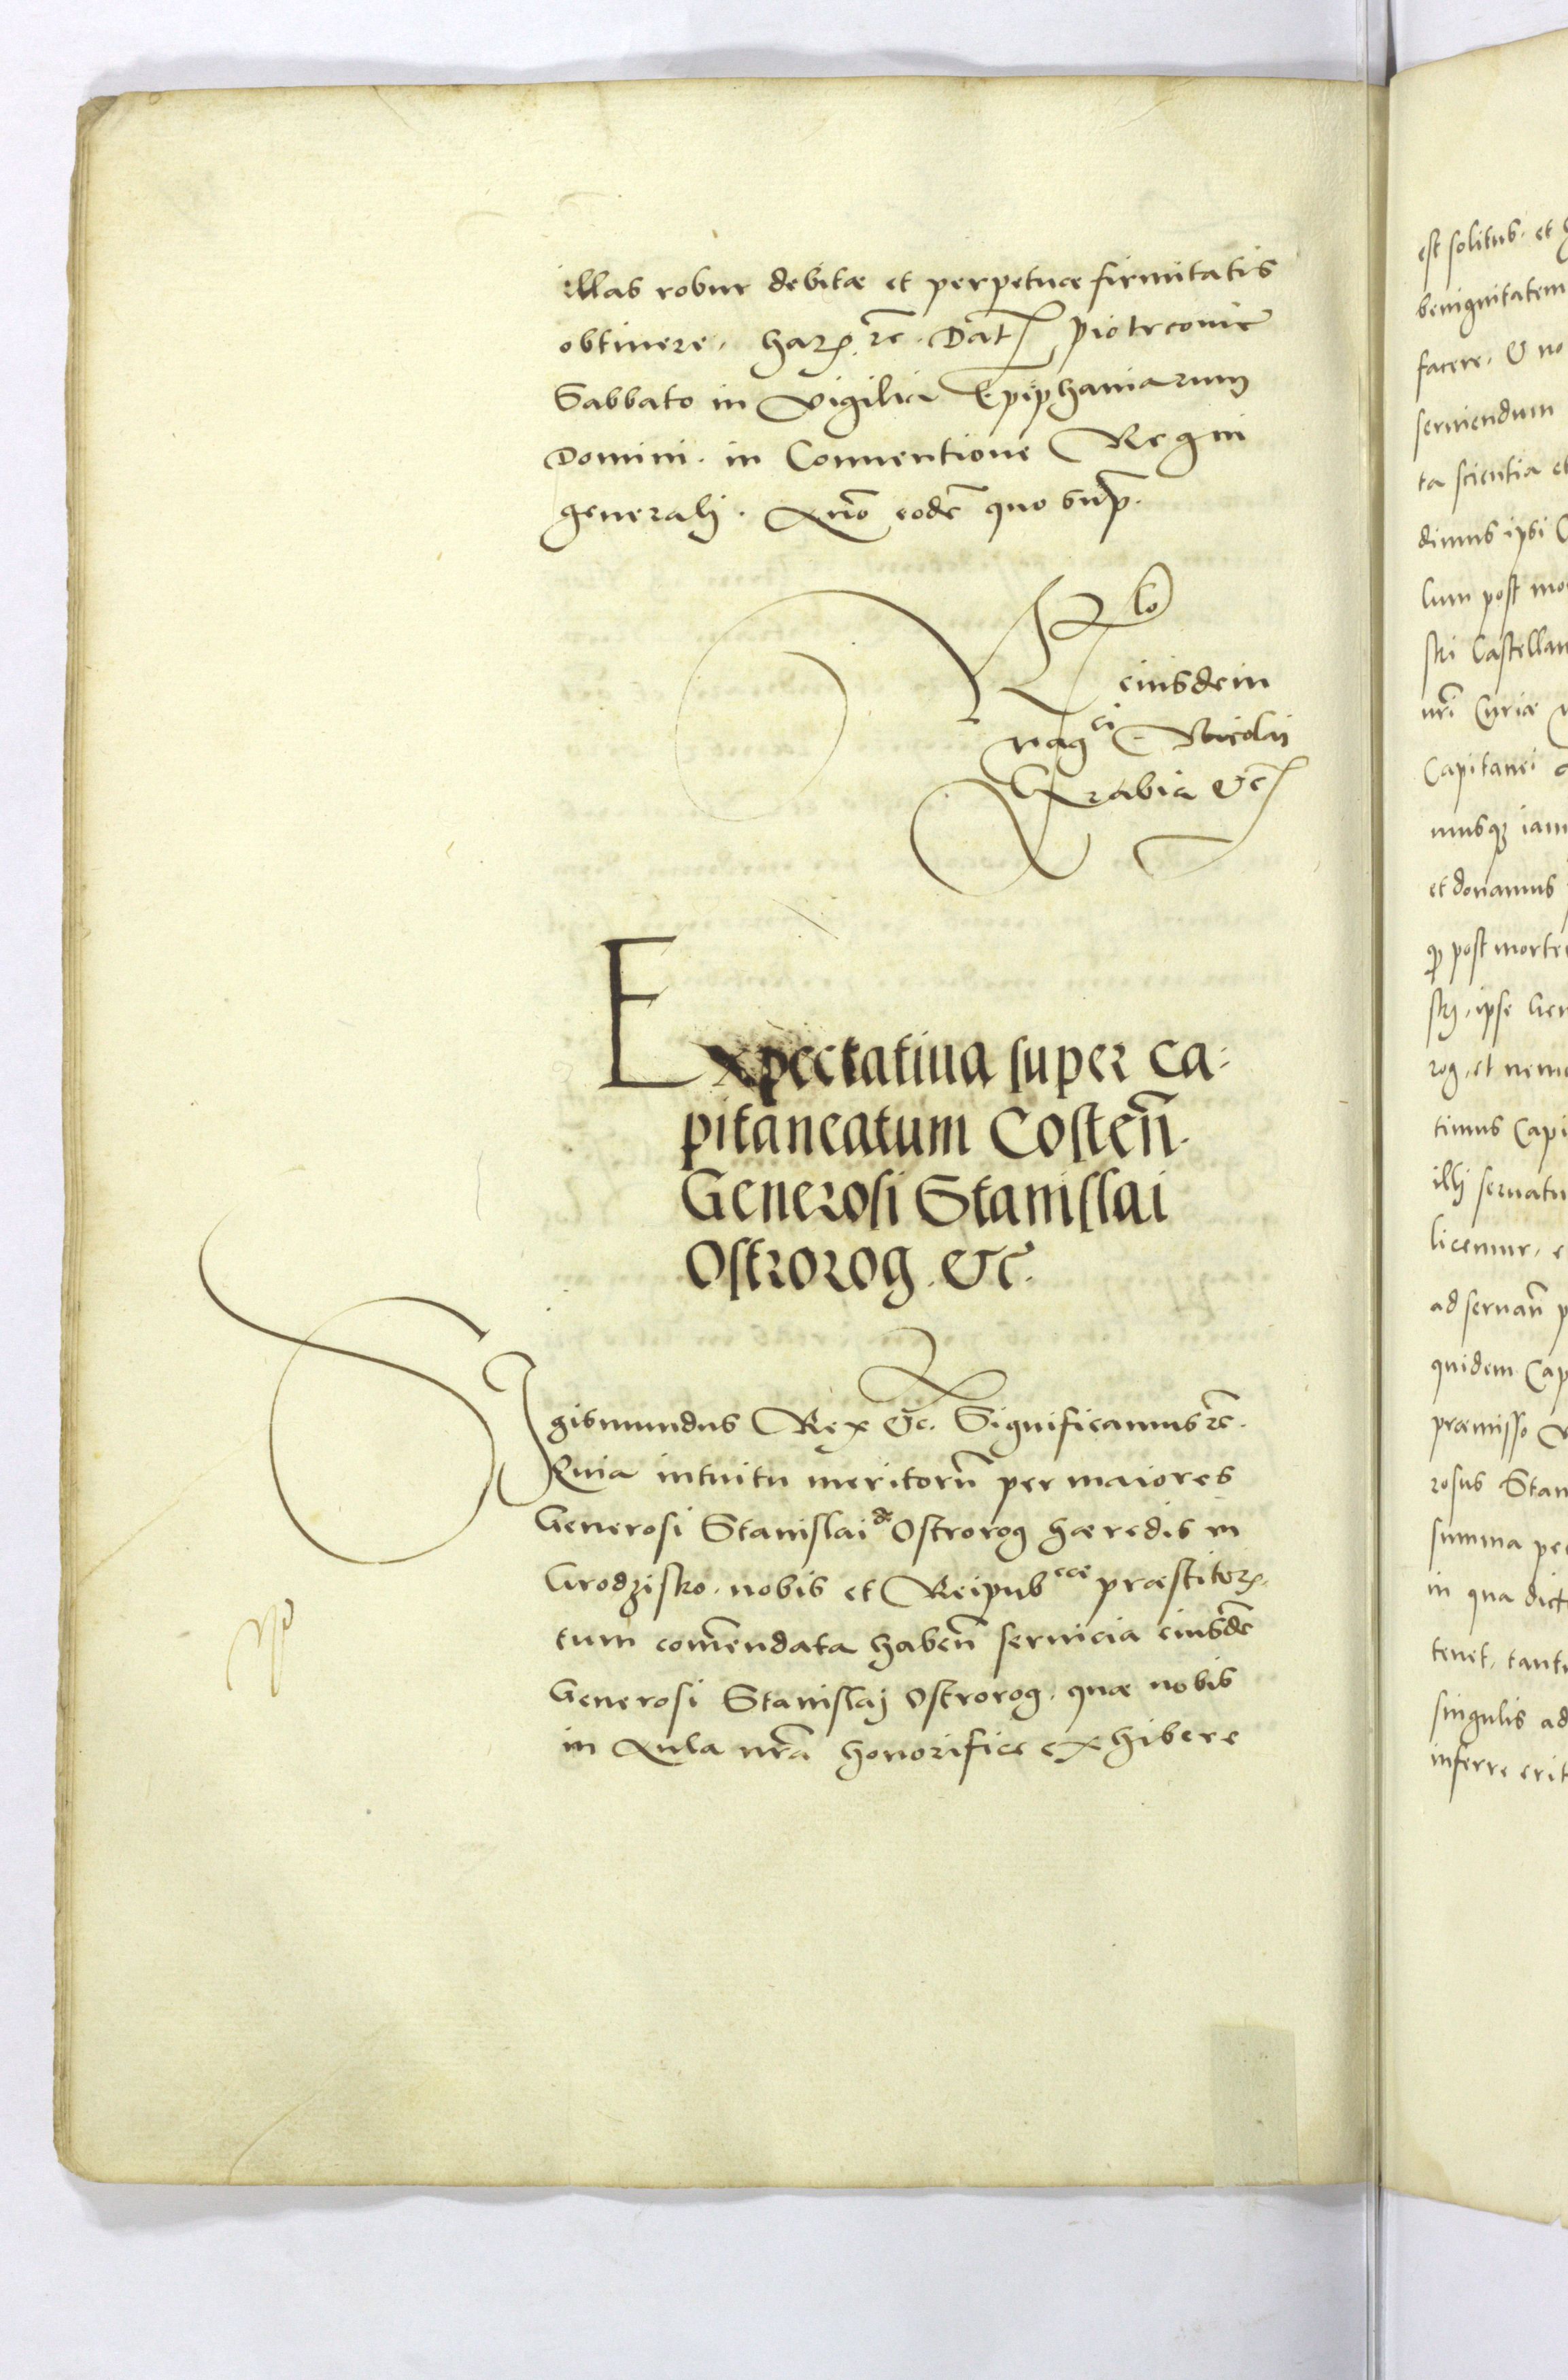 illas robur debitæ et perpetuæ firmitatis
obtinere. harꝝ. ꝛc. Dat Piotrcovie
Sabbato in Vigilia Epiphaniarum
Domini. in Conventione Regni
generalj. Año eodē quo sup̃.
Rlo
eiusdem
magci Nicolai
Hrabia &c
Expectatiua super ca-
pitaneatum Costeñ.
Generosi Stanislai
Ostrorog. &c.
Sigismundus Rex &c. Significamus ꝛc.
Quia intuitu meritorū per maiores
Generosi Stanislai de Ostrorog hæredis in
Grodzisko. nobis et Reipubcæ præstitorꝝ.
tum com̄endata habeñ seruicia eiusdē
Generosi Stanislaj Ostrorog. quæ nobis
in Aula nr̃a honorifice exhibere
est solitus. et
benignitatem
facere. & no
seruiendum
ta scientia et
dimus ipsi
lum post mo
ski Castellan
nr̃i Curiæ
Capitanei
musqꝫ iam
et donamus
qꝫ post morte
skj. ipse Gen
rog. et nem
timus Capi
illj seruatu
licemur. e
ad seruañ p
quidem Cap
præmisso
rosus Stan
summa pe
in qua dict
tenet. tant
singulis ad
inferre erit